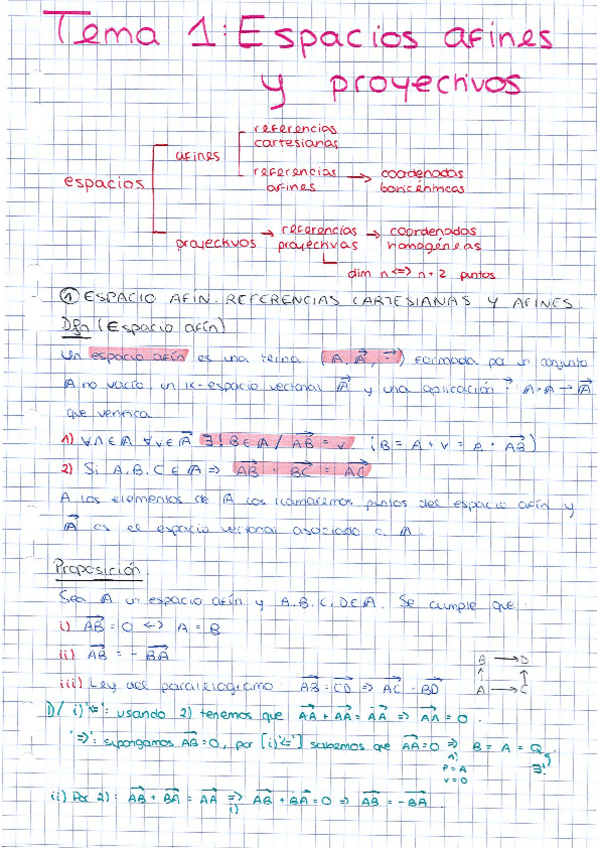 Tema 1: Espacios afines
y proyectivos
espacios
afines
referencias
cartesianas
referencias
afines → coordenadas
baricéntricas
proyectivos → referencias
proyectivas → coordenadas
homogéneas
dim n <=> n+2 puntos
① ESPACIO AFÍN. REFERENCIAS CARTESIANAS Y AFINES.
Dfn (Espacio afín)
Un espacio afín es una terna (A, A⃗, →) formada por un conjunto
A no vacío, un K-espacio vectorial A⃗ y una aplicación → A×A → A⃗
que verifica
1) ∀A∈A ∀v∈A⃗ ∃! B∈A / AB⃗ = v (B = A + v = A + AB⃗)
2) Si A, B, C ∈ A => AB⃗ + BC⃗ = AC⃗
A los elementos de A los llamaremos puntos del espacio afín y
A⃗ es el espacio vectorial asociado a A.
Proposición.
Sea A un espacio afín y A, B, C, D ∈ A. Se cumple que:
i) AB⃗ = 0 <=> A = B
ii) AB⃗ = - BA⃗
iii) Ley del paralelogramo AB⃗ = CD⃗ => AC⃗ = BD⃗
B → D
↑ ↑
A → C
D/ i) '<=': usando 2) tenemos que AA⃗ + AA⃗ = AA⃗ => AA⃗ = 0.
'=>': supongamos AB⃗ = 0, por [i)'<='] sabemos que AA⃗ = 0 => B = A = Q,
1)
P = A
v = 0
∃!
ii) Por 2): AB⃗ + BA⃗ = AA⃗ => AB⃗ + BA⃗ = 0 => AB⃗ = - BA⃗.
i)